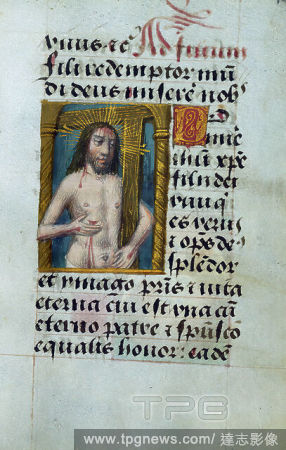 vnus · et Ad filium
fili redemptor mũ
di deus miserē nob
Dñe
ihũ xpe
fili dei
viui q
es verus
⁊ oṗs de
splēdor
et ymago pr̃is ⁊ vita
eterna cui est vna cũ
eterno patre ⁊ sp̃usco
equalis honor: eadē
TPG
www.tpgnews.com/ 達志影像